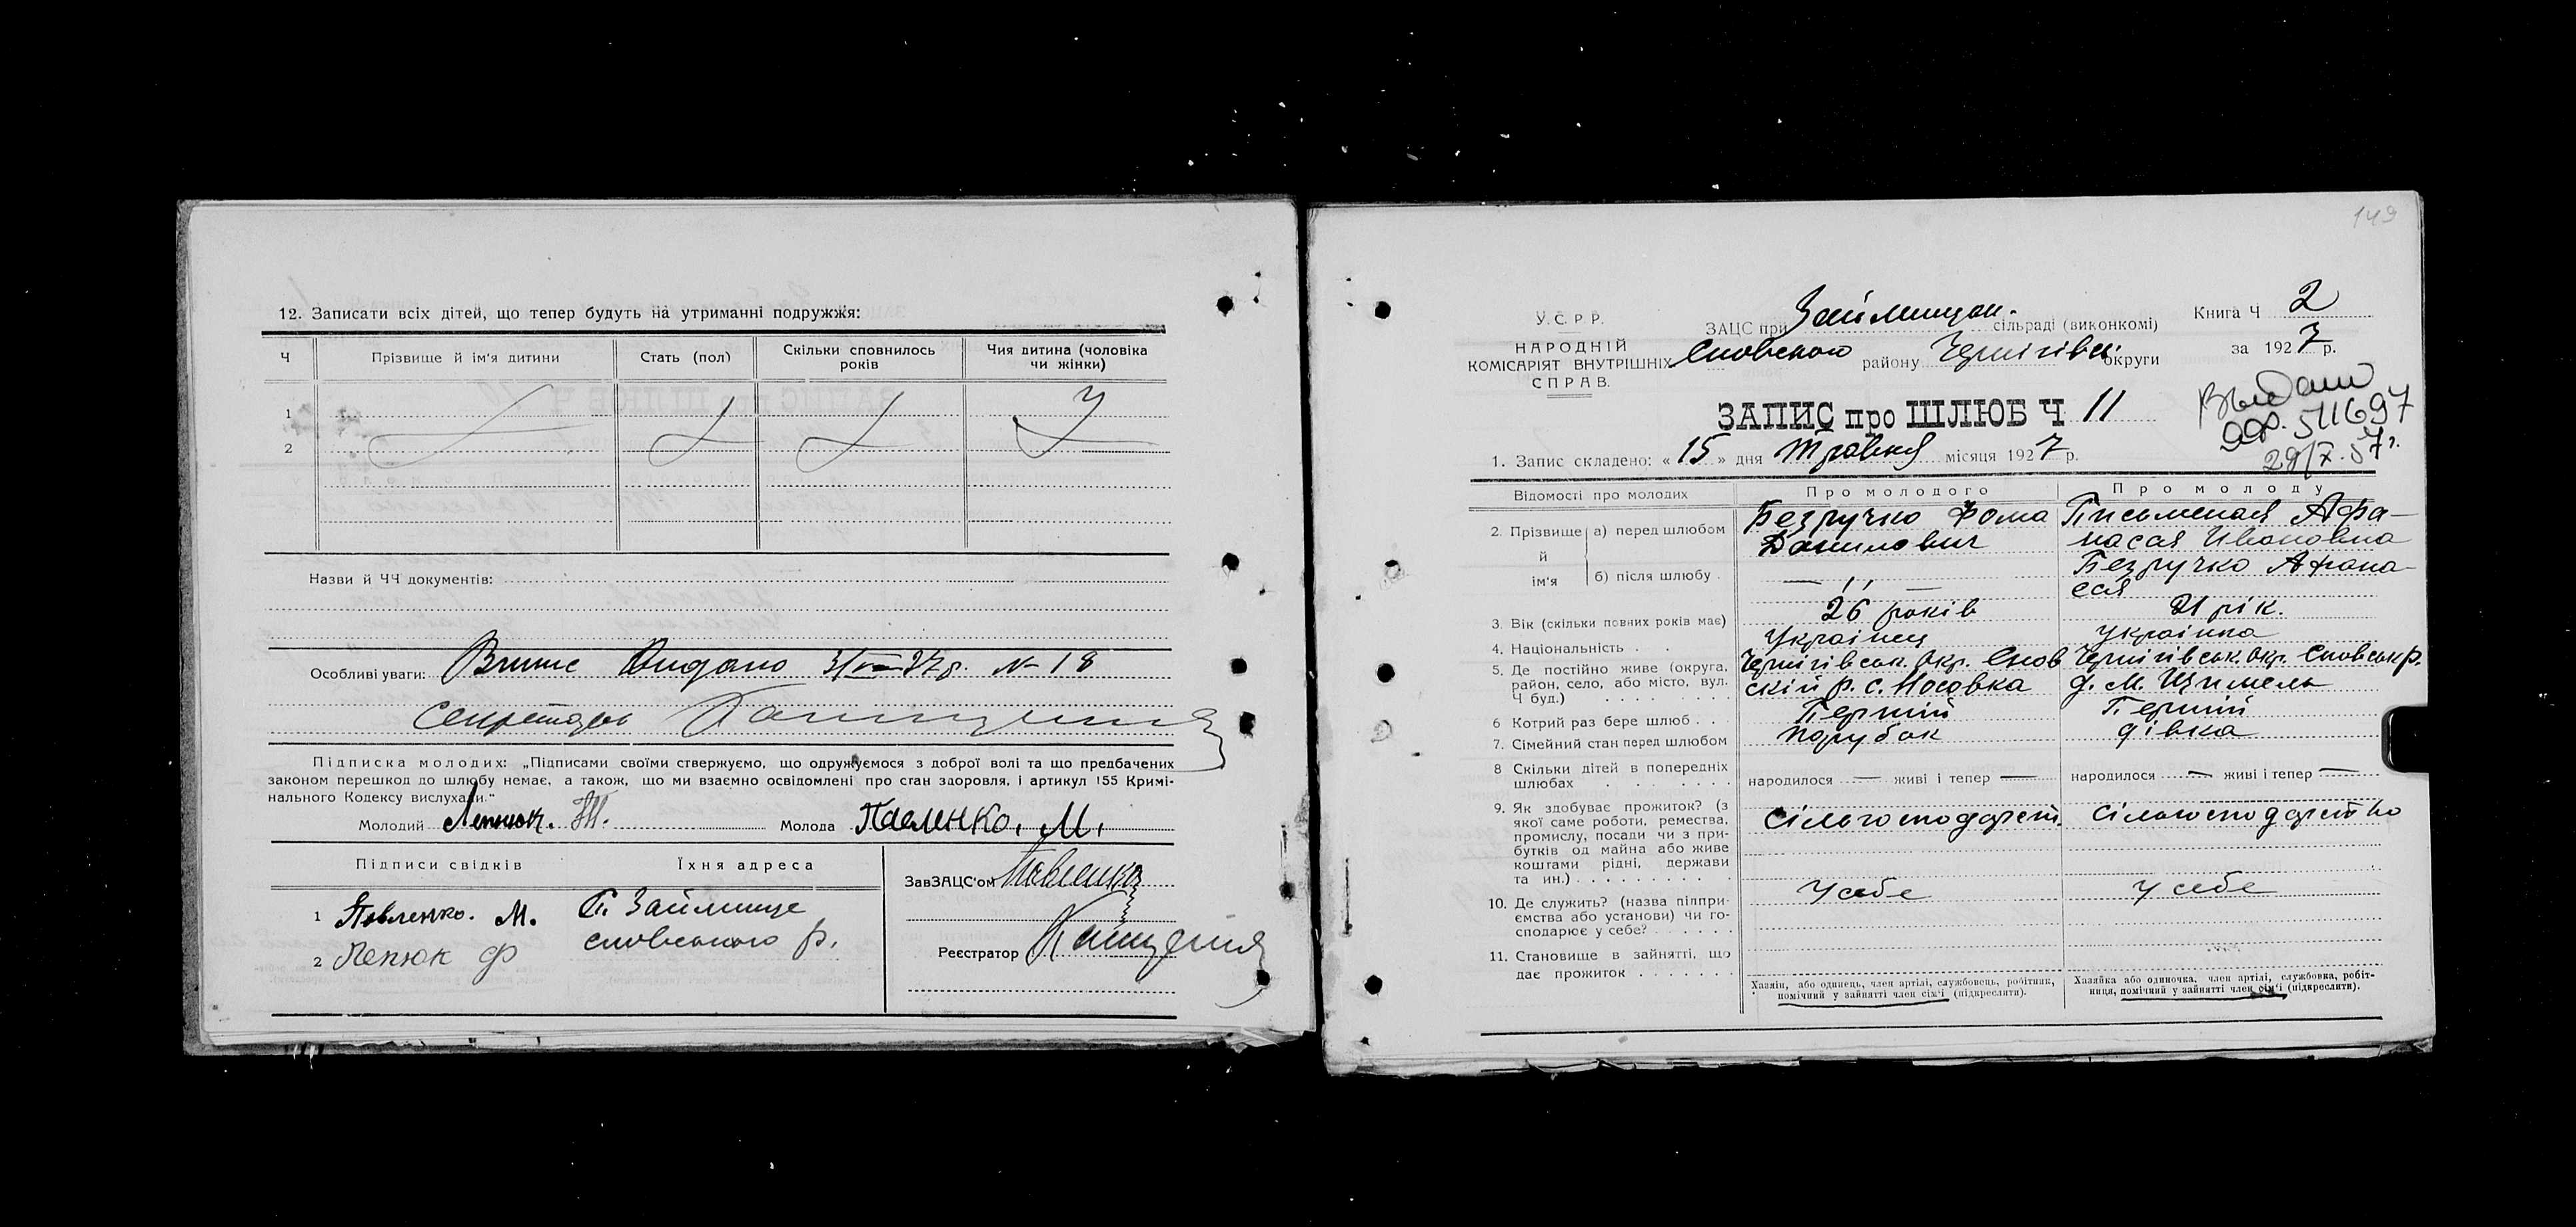 12. Записати всіх дітей, що тепер будуть на утриманні подружжя:
Ч Прізвище й ім'я дитини Стать (пол) Скільки сповнилось років Чия дитина (чоловіка чи жінки)
1
2
Назви й ЧЧ документів:
Особливі уваги: Випис Видано 3/VI 27 р. № 18
секретарь
Підписка молодих: „Підписами своїми стверджуємо, що одружуємося з доброї волі та що предбачених
законом перешкод до шлюбу немає, а також, що ми взаємно освідомлені про стан здоровля, і артикул 155 Кримі-
нального Кодексу вислухали."
Молодий Лепнюк. Молода Павленко. М.
Підписи свідків Їхня адреса
ЗавЗАЦС'ом Павленко
1 Павленко. М. С. Займище
сновського р.
2 Лепюк Ф
Реєстратор
149
У.С.Р.Р.
НАРОДНІЙ
КОМІСАРІЯТ ВНУТРІШНІХ
СПРАВ.
ЗАЦС при Займищан. сільраді (виконкомі)
Сновського району Чернігівськ. округи
Книга Ч 2
за 1927 р.
ЗАПИС про ШЛЮБ Ч 11
Выдано
511697
29/X. 57 г.
1. Запис складено: « 15 » дня Травня місяця 1927 р.
Відомості про молодих Про молодого Про молоду
2. Прізвище й ім'я а) перед шлюбом Безручко Фома Письменая Афа-
Данилович насия Ивановна
б) після шлюбу — ,, — Безручко Афана-
сия
3. Вік (скільки повних років має) 26 років 21 рік.
4. Національність . . Українец Українка
5. Де постійно живе (округа, Чернігівськ. Окр. Снов Чернігівськ. Окр. Сновськ р.
район, село, або місто, вул. ский р. с. Носовка с. М. Щимель
Ч буд.)
6 Котрий раз бере шлюб . . Перший Перший
7. Сімейний стан перед шлюбом парубок дівка
8 Скільки дітей в попередніх
шлюбах народилося — живі і тепер — народилося — живі і тепер —
9. Як здобуває прожиток? (з
якої саме роботи, ремества, сільгосподарст. сільгосподарство
промислу, посади чи з при-
бутків од майна або живе
коштами рідні, держави
та ин.)
10. Де служить? (назва підпри- У себе У себе
ємства або установи) чи го-
сподарює у себе?
11. Становище в зайнятті, що
дає прожиток
Хазяін, або одинець, член артілі, службовець, робітник,
помічний у зайнятті член сім'ї (підкреслити).
Хазяйка або одиночка, член артілі, службовка, робіт-
ниця, помічний у зайнятті член сім'ї (підкреслити).